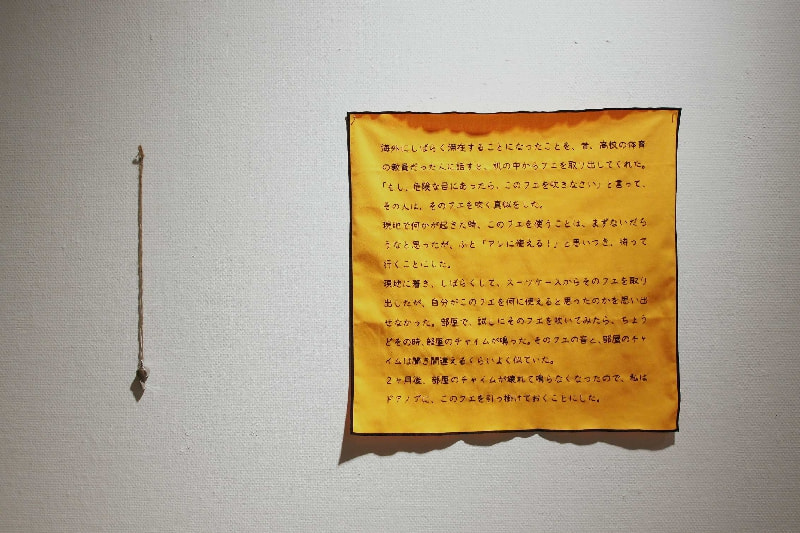 海外にしばらく滞在することになったことを、昔、高校の体育
の教員だった人に話すと、机の中からフエを取り出してくれた。
「もし、危険な目にあったら、このフエを吹きなさい」と言って、
その人は、そのフエを吹く真似をした。
現地で何かが起きた時、このフエを使うことは、まずないだろ
うなと思ったが、ふと「アレに使える！」と思いつき、持って
行くことにした。
現地に着き、しばらくして、スーツケースからそのフエを取り
出したが、自分がこのフエを何に使えると思ったのかを思い出
せなかった。部屋で、試しにそのフエを吹いてみたら、ちょう
どその時、部屋のチャイムが鳴った。そのフエの音と、部屋のチャ
イムは聞き間違えるぐらいよく似ていた。
２ヶ月後、部屋のチャイムが壊れて鳴らなくなったので、私は
ドアノブに、このフエを引っ掛けておくことにした。